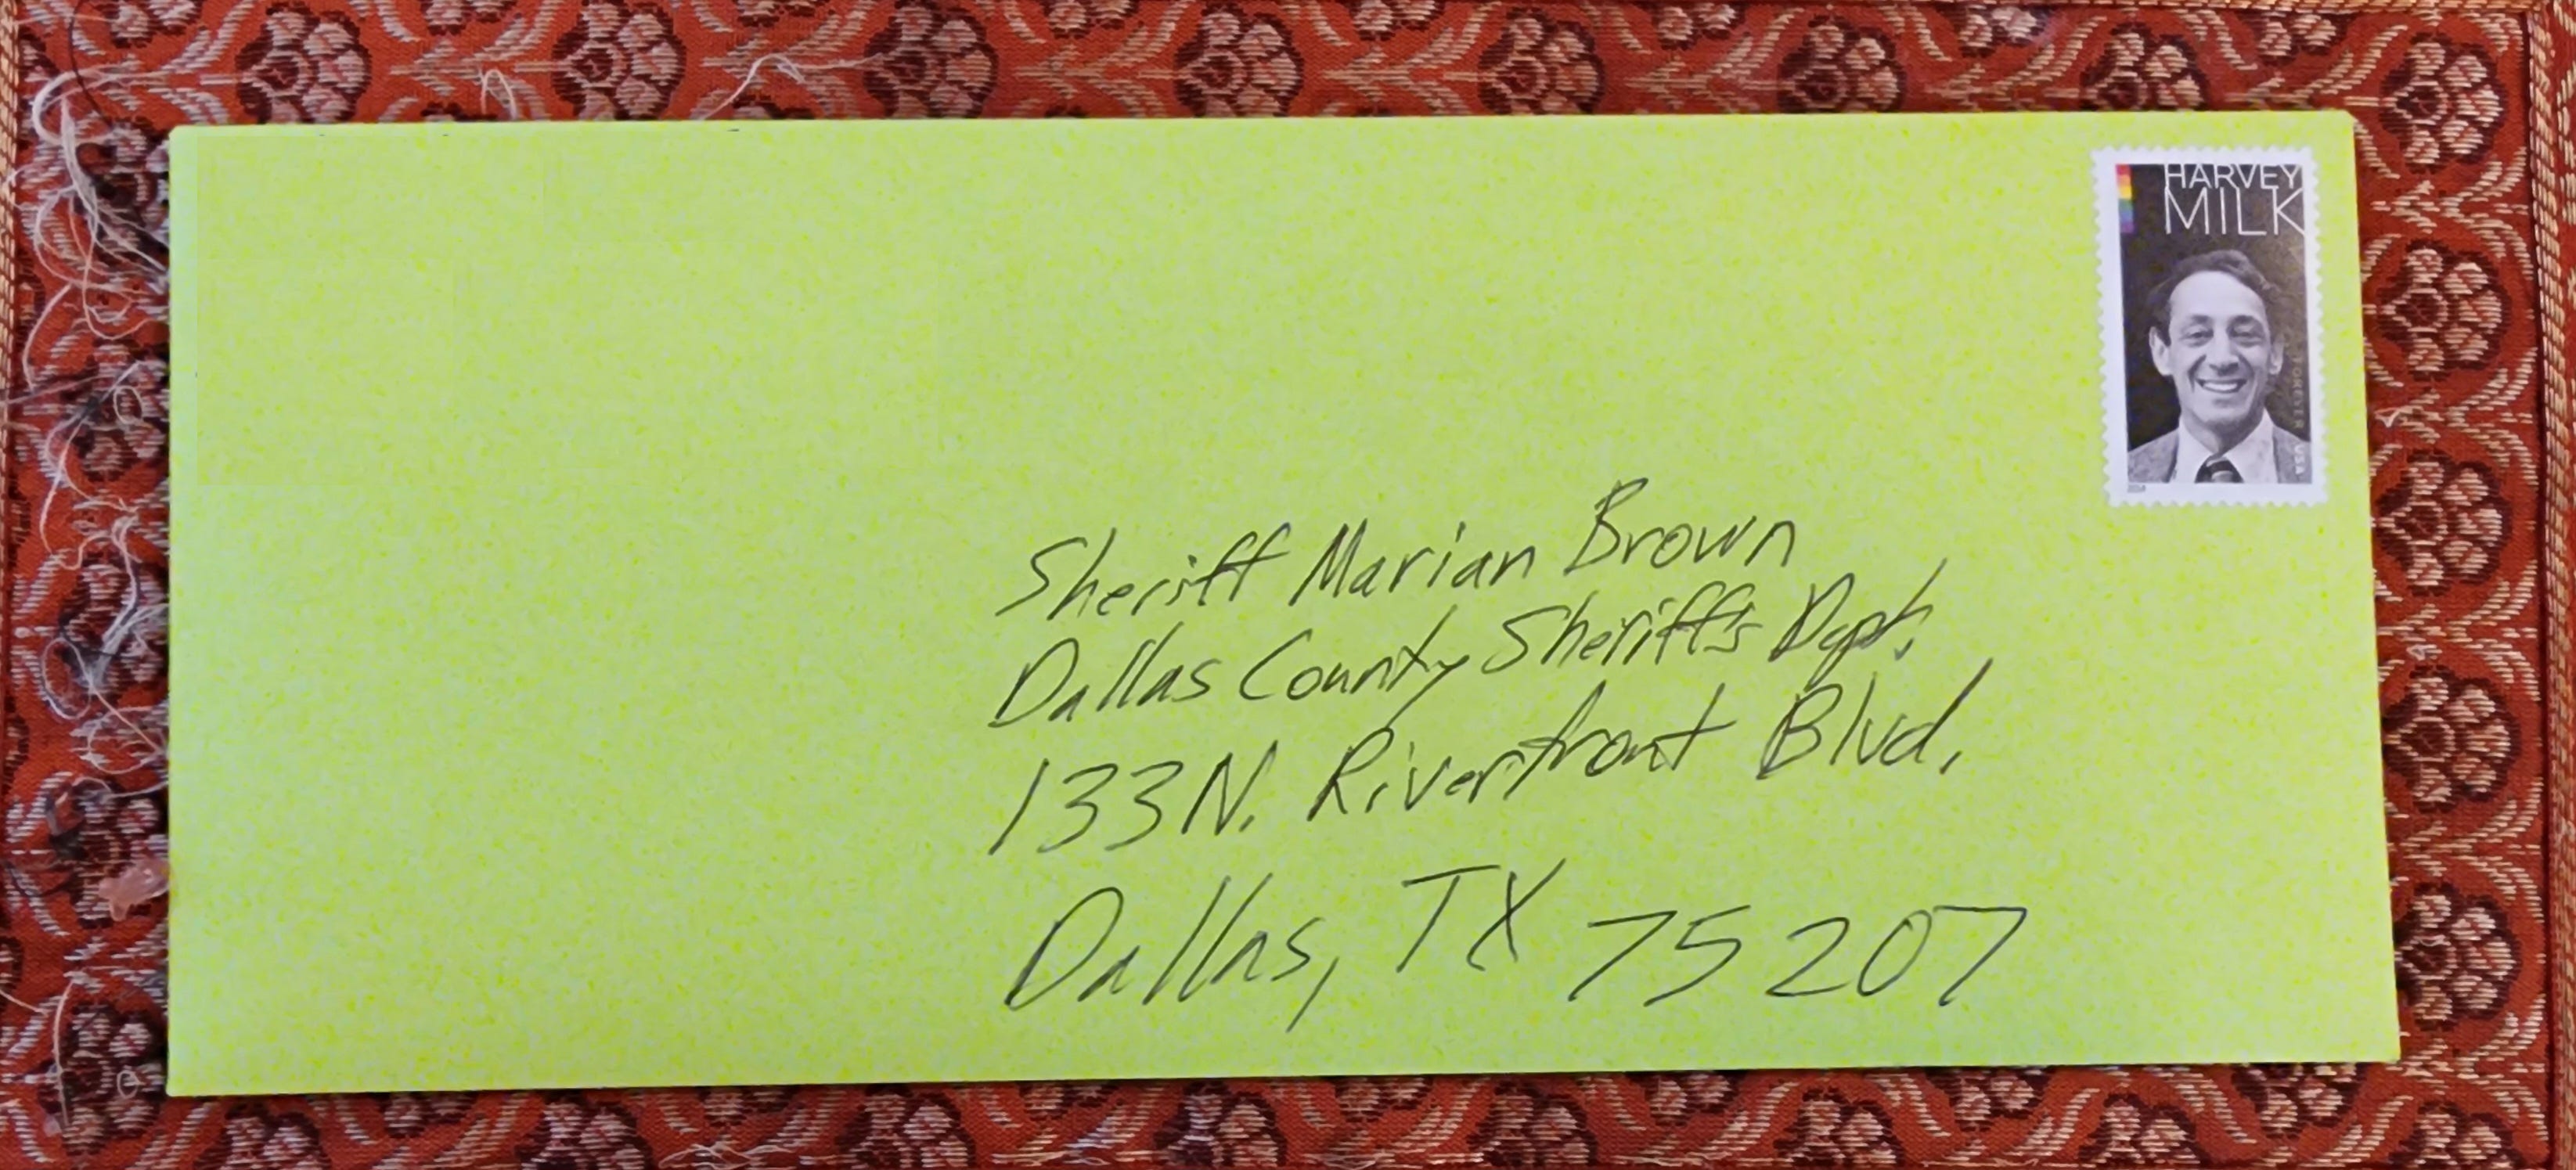 HARVEY
MILK
FOREVER USA
2014
Sheriff Marian Brown
Dallas County Sheriff's Dept.
133 N. Riverfront Blvd.
Dallas, TX 75207